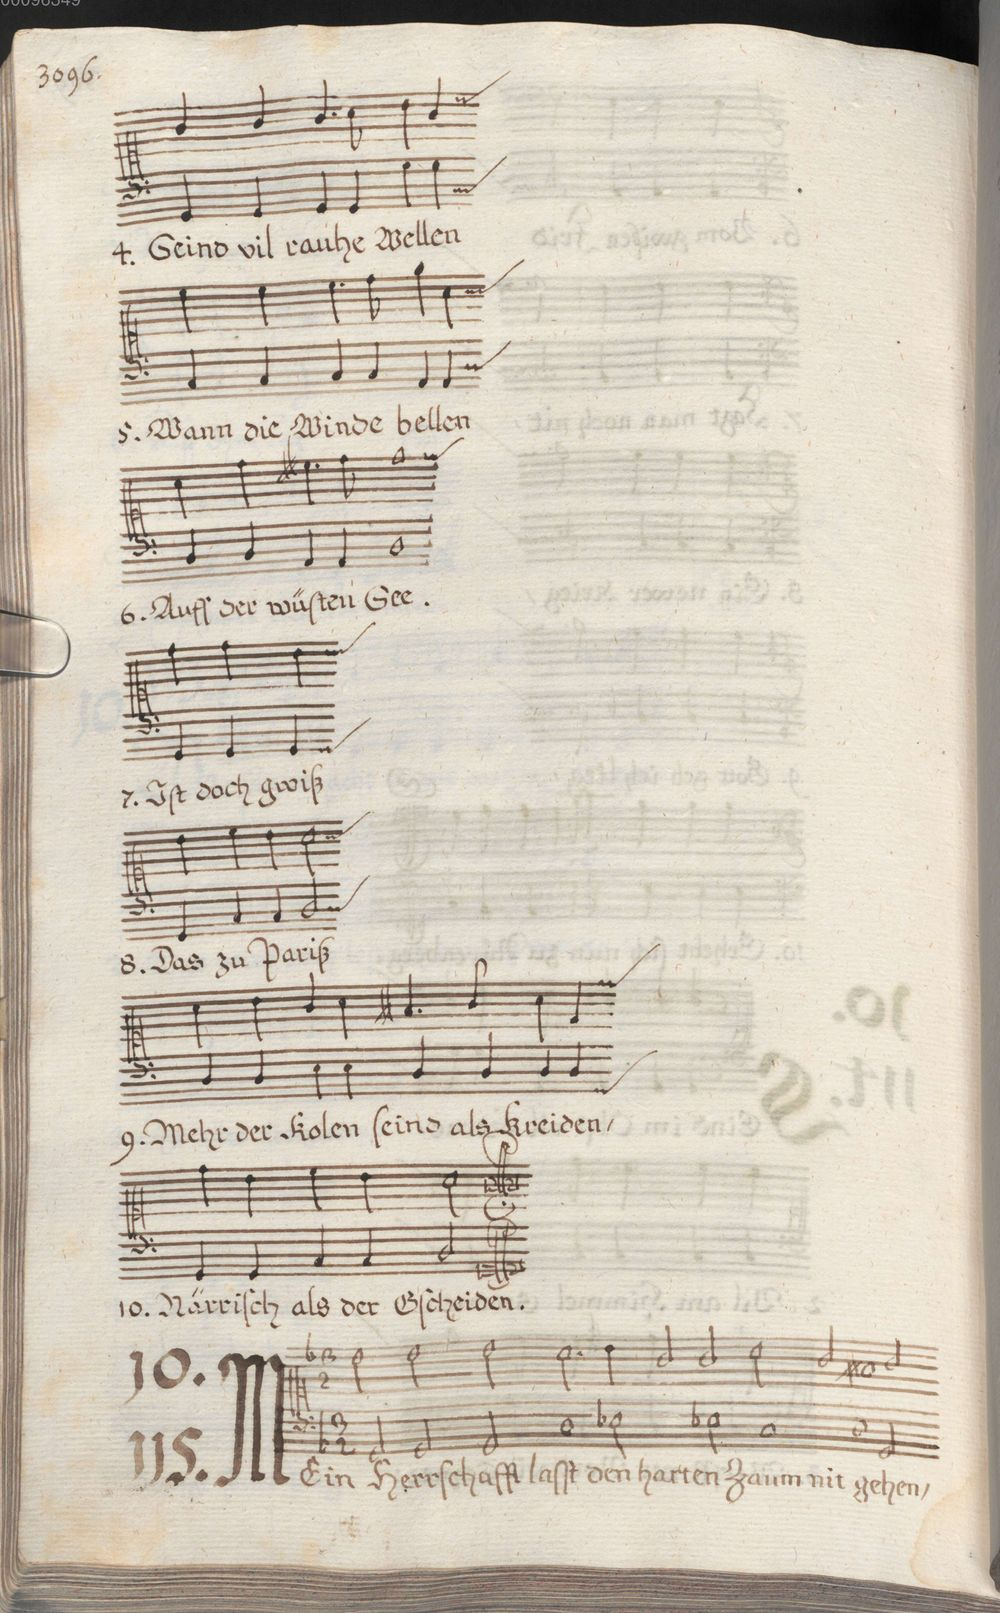 00096349
3096.
4. Seind vil rauhe Wellen
5. Wann die Winde bellen
6. Auff der wüsten See.
7. Ist doch gwiß
8. Das zu Pariß
9. Mehr der Kolen seind als Kreiden/
10. Närrisch als der Gscheiden.
10.
115. MEin Herrschafft lasst den harten Zaum nit gehen/